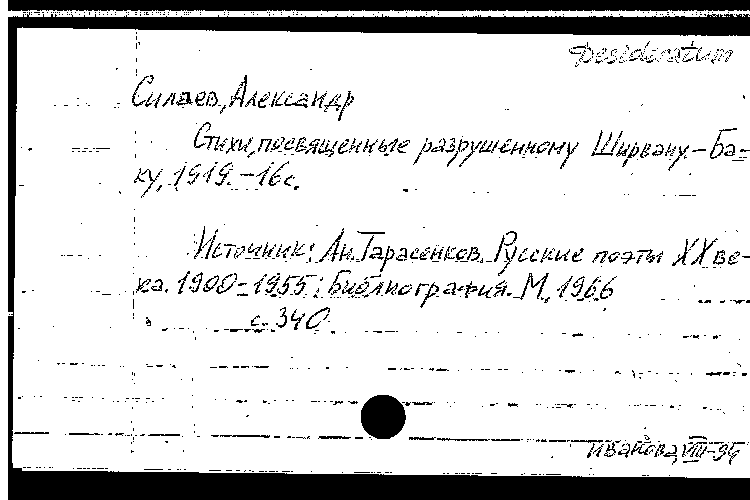 Desideratum
Силаев, Александр
Стихи, посвященные разрушенному Ширвану.-Ба-
ку, 1919.-16с.
Источник: Ан.Тарасенков. Русские поэты XX ве-
ка. 1900-1955: Библиография. М., 1966
с. 340.
Иванова, VIII-94